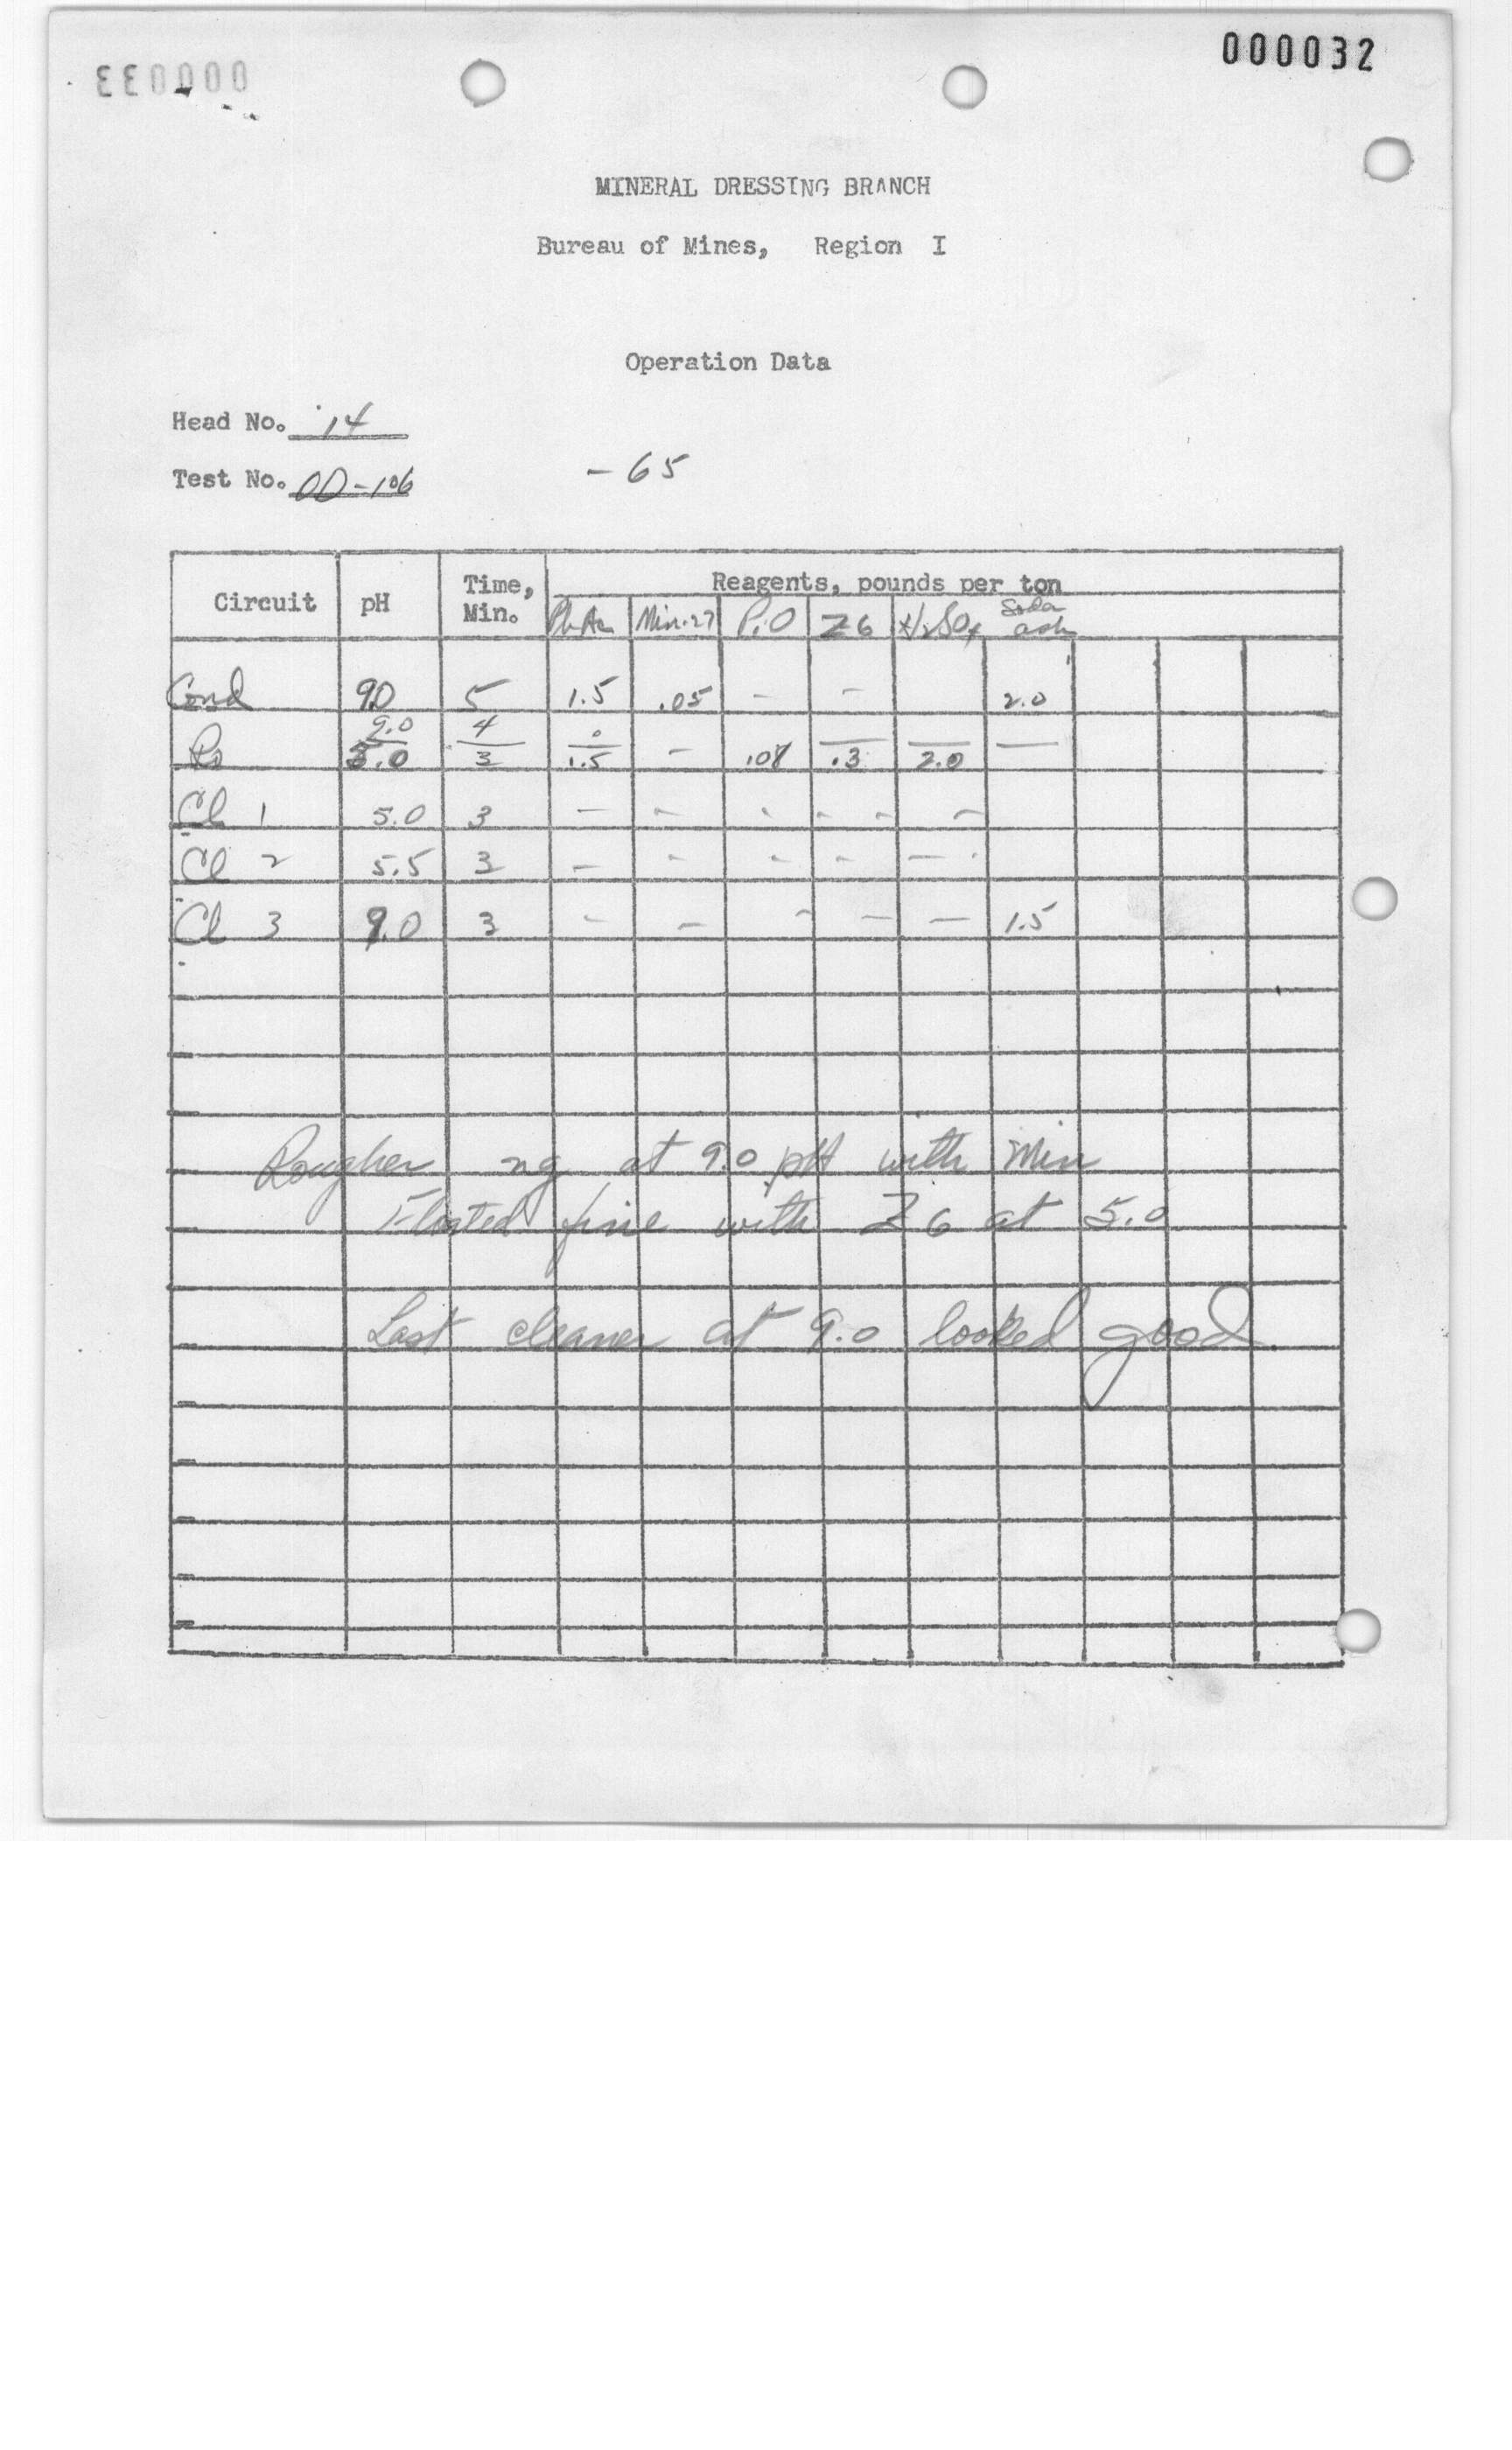 000032
000033
MINERAL DRESSING BRANCH
Bureau of Mines, Region I
Operation Data
Head No. 14
Test No. OD-106 -65
Circuit pH Time, Min. Reagents, pounds per ton
Min-27 P.O Z6 H2SO4 Soda ash
Cond 9.0 5 1.5 .05 - - 2.0
Ro 9.0 4 0 — — —
5.0 3 1.5 - .08 .3 2.0
Cl 1 5.0 3 - - - - - -
Cl 2 5.5 3 - - - - — -
Cl 3 9.0 3 - - - - — 1.5
Rougher ng at 9.0 pH with Min
Floated fine with Z6 at 5.0
Last cleaner at 9.0 looked good.